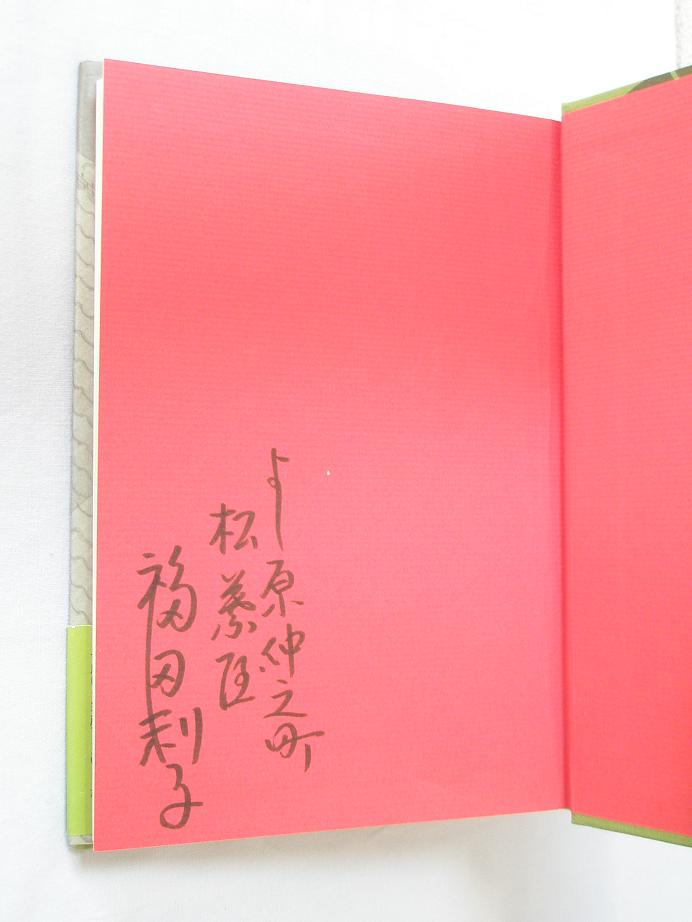 よし原仲之町
松葉屋
福田利子